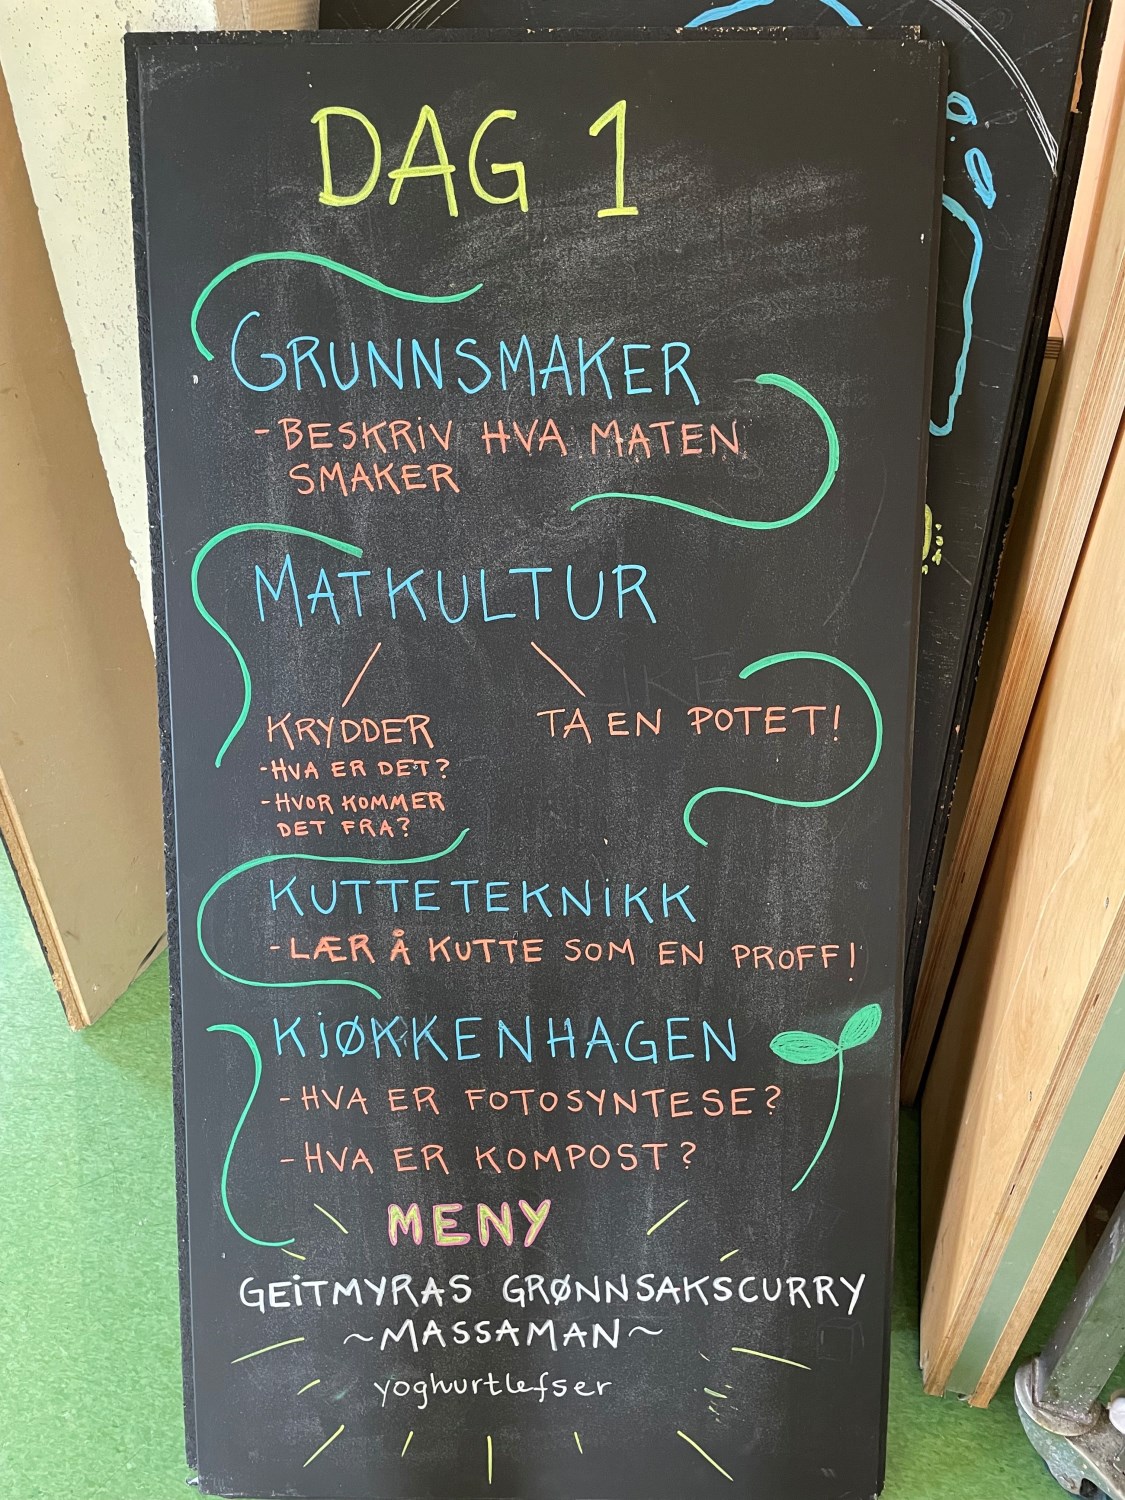 DAG 1
GRUNNSMAKER
- BESKRIV HVA MATEN
SMAKER
MATKULTUR
KRYDDER
- HVA ER DET?
- HVOR KOMMER
DET FRA?
TA EN POTET!
KUTTETEKNIKK
- LÆR Å KUTTE SOM EN PROFF!
KJØKKENHAGEN
- HVA ER FOTOSYNTESE?
- HVA ER KOMPOST?
MENY
GEITMYRAS GRØNNSAKSCURRY
~MASSAMAN~
yoghurtlefser